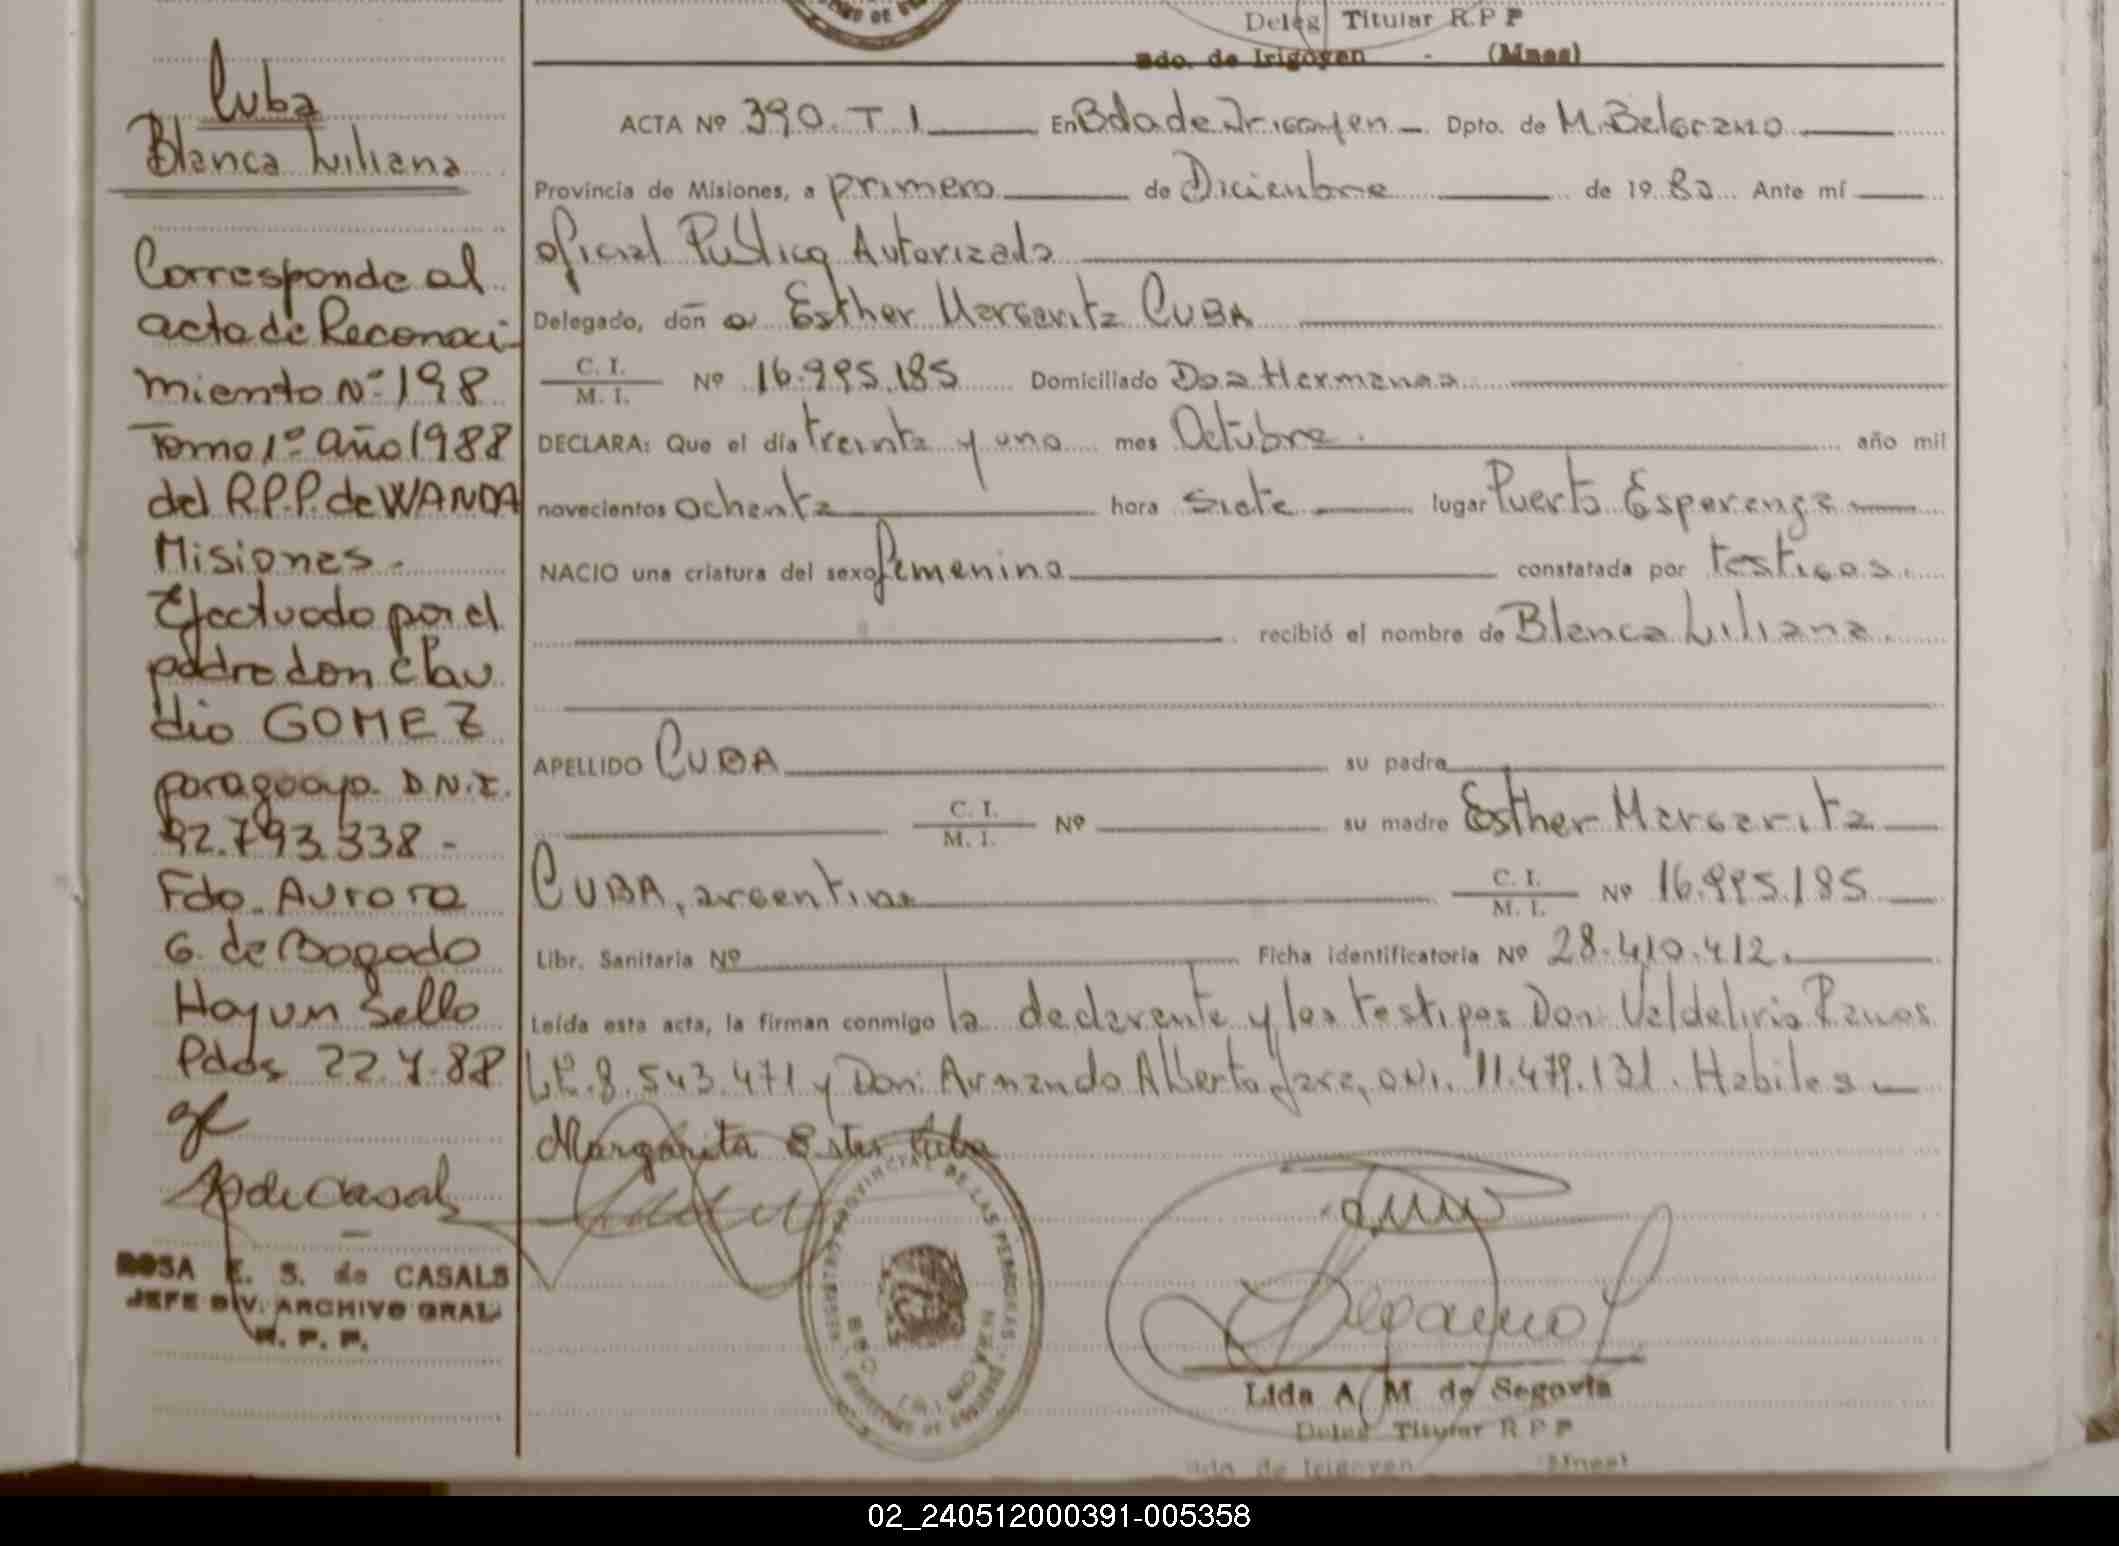 DE
Deleg Titular R.P.P
Bdo. de Irigoyen - (Mnes)
Cuba
Blanca Liliana
Corresponde al
acta de Reconoci-
miento Nº 198
Tomo 1º año 1988
del R.P.P. de WANDA
Misiones.-
Efectuado por el
padre don Clau
dio GOMEZ
paraguayo. D.N.I.
92.793.338 -
Fdo. Aurora
G. de Bogado
Hay un Sello
Pdas 22.4.88
SdeCasals
ROSA E. S. de CASALS
JEFE DIV. ARCHIVO GRAL.
R. P. P.
ACTA Nº 390. T 1 En Bdo de Irigoyen Dpto. de M. Belgrano
Provincia de Misiones, a primero de Diciembre de 19 80 Ante mí
oficial Publico Autorizado
Delegado, don a Esther Margarita CUBA
C. I.
M. I. Nº 16.995.185 Domiciliado Dos Hermanas
DECLARA: Que el día treinta y uno mes Octubre. año mil
novecientos ochenta hora siete lugar Puerto Esperanza
NACIO una criatura del sexo femenino constatada por testigos.
recibió el nombre de Blanca Liliana.
APELLIDO CUBA su padre
C. I.
M. I. Nº su madre Esther Margarita
CUBA, argentina C. I.
M. I. Nº 16.995.185
Libr. Sanitaria Nº Ficha identificatoria Nº 28.410.412.
Leída esta acta, la firman conmigo la declarante y los testigos Don: Valdelirio Ramos
L.E. 8.543.471 y Don: Armando Alberto Jara, DNI. 11.479.131. Habiles
Margarita Ester Cuba
REGISTRO PROVINCIAL DE LAS PERSONAS
Lida A. M. de Segovia
Deleg Titular R P P
Bdo. de Irigoyen (Mnes)
02_240512000391-005358